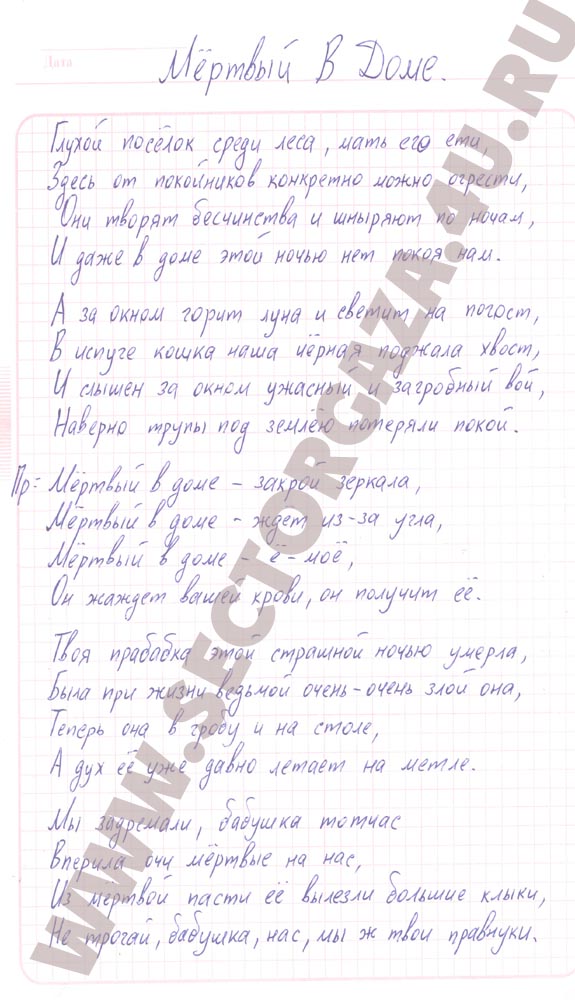 Дата
Мёртвый В Доме.
Глухой посёлок среди леса, мать его ети,
Здесь от покойников конкретно можно огрести,
Они творят бесчинства и шныряют по ночам,
И даже в доме этой ночью нет покоя нам.
А за окном горит луна и светит на погост,
В испуге кошка наша чёрная поджала хвост,
И слышен за окном ужасный и загробный вой,
Наверно трупы под землёю потеряли покой.
Пр: Мёртвый в доме - закрой зеркала,
Мёртвый в доме - ждет из-за угла,
Мёртвый в доме - ё-моё,
Он жаждет вашей крови, он получит её.
Твоя прабабка этой страшной ночью умерла,
Была при жизни ведьмой очень-очень злой она,
Теперь она в гробу и на столе,
А дух её уже давно летает на метле.
Мы задремали, бабушка тотчас
Вперила очи мёртвые на нас,
Из мёртвой пасти её вылезли большие клыки,
Не трогай, бабушка, нас, мы ж твои правнуки.
WWW.SECTORGAZA.4U.RU